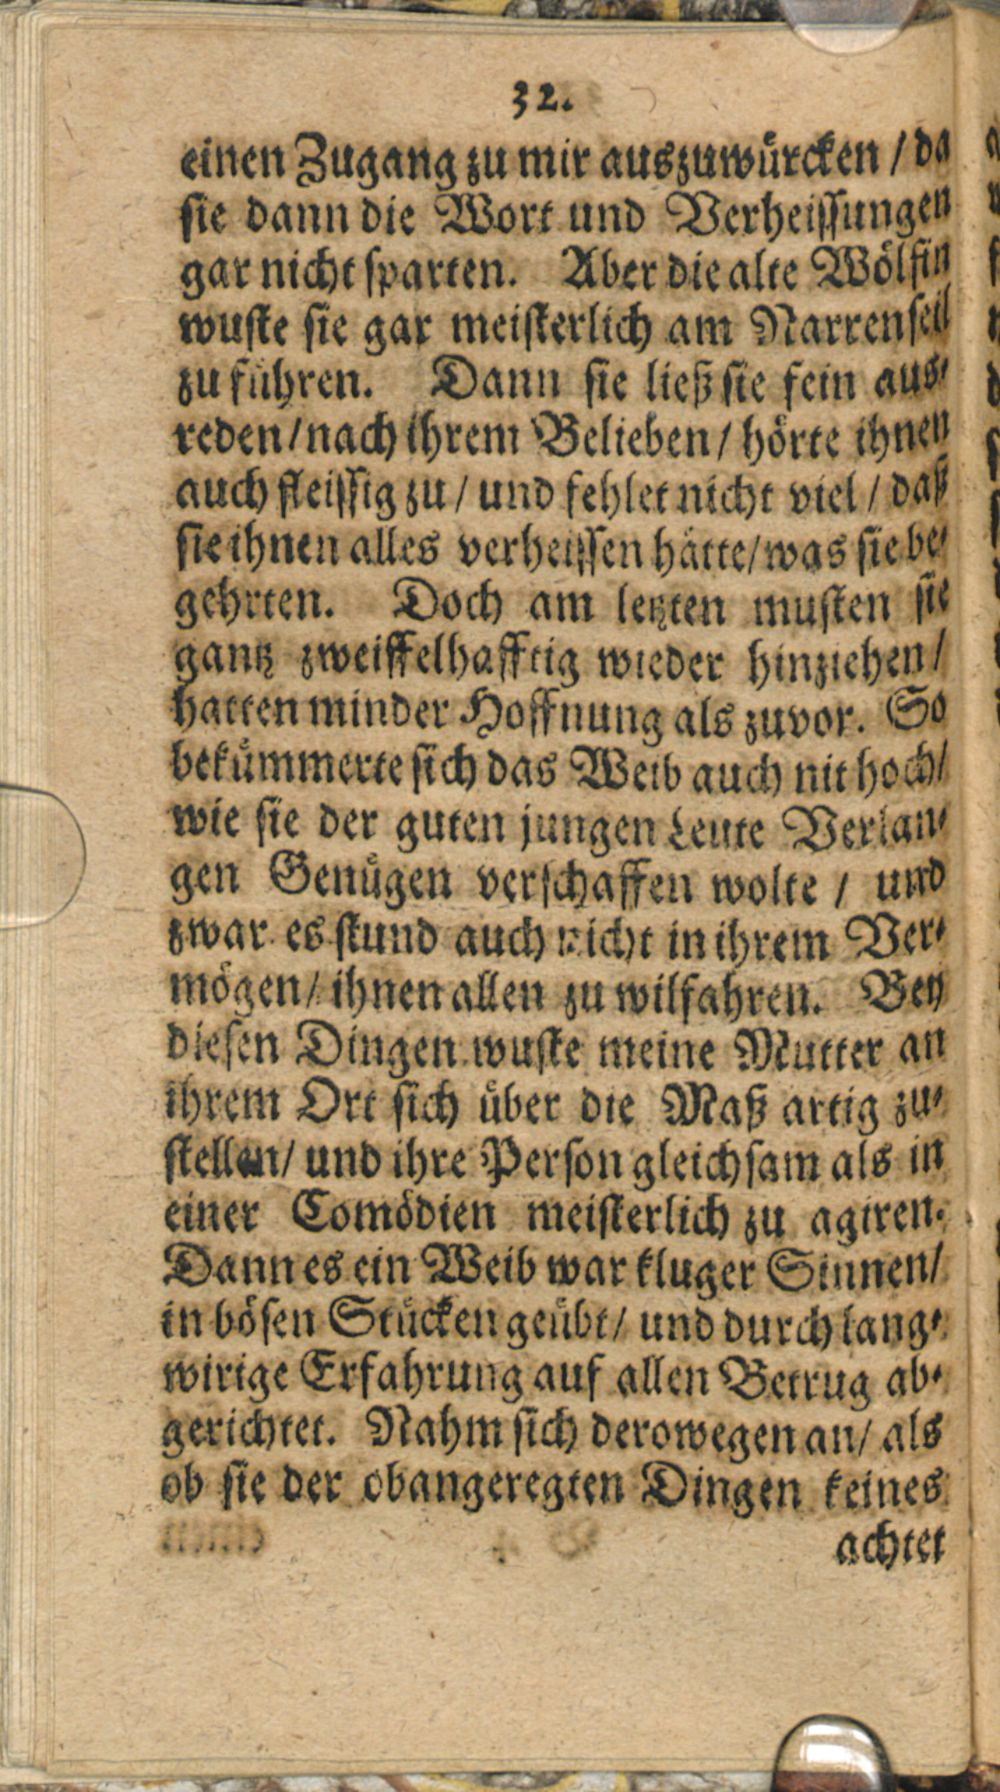 32.
einen Zugang zu mir auszuwürcken / da
sie dann die Wort und Verheissungen
gar nicht sparten. Aber die alte Wölfin
wuste sie gar meisterlich am Narrenseil
zu führen. Dann sie ließ sie fein aus-
reden / nach ihrem Belieben / hörte ihnen
auch fleissig zu / und fehlet nicht viel / daß
sie ihnen alles verheissen hätte / was sie be-
gehrten. Doch am letzten musten sie
gantz zweiffelhafftig wieder hinziehen /
hatten minder Hoffnung als zuvor. So
bekümmerte sich das Weib auch nit hoch /
wie sie der guten jungen Leute Verlan-
gen Genügen verschaffen wolte / und
zwar es stund auch nicht in ihrem Ver-
mögen / ihnen allen zu wilfahren. Bey
diesen Dingen wuste meine Mutter an
ihrem Ort sich über die Maß artig zu-
stellen / und ihre Person gleichsam als in
einer Comödien meisterlich zu agiren.
Dann es ein Weib war kluger Sinnen /
in bösen Stücken geübt / und durch lang-
wirige Erfahrung auf allen Betrug ab-
gerichtet. Nahm sich derowegen an / als
ob sie der obangeregten Dingen keines
achtet